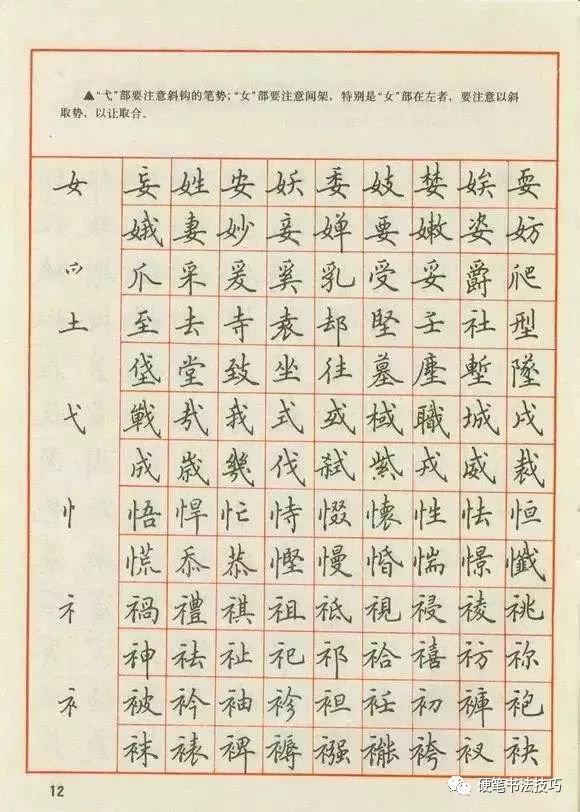 ▲“弋”部要注意斜钩的笔势；“女”部要注意间架，特别是“女”部在左者，要注意以斜
取势，以让取合。
女 妄 姓 安 妖 委 妓 婪 娭 耍
娥 妻 妙 妾 婵 要 嫩 姿 妨
爫 爪 采 爰 奚 乳 受 妥 爵 爬
土 至 去 寺 袁 却 堅 壬 社 型
垡 堂 致 坐 往 墓 塵 塹 墜
弋 戰 哉 我 式 或 域 職 城 戍
成 歲 幾 伐 弑 戎 威 裁
忄 悟 悍 忙 恃 惙 懷 性 怯 恒
慌 忝 恭 慳 慢 惛 惴 憬 懺
礻 禍 禮 祺 祖 祗 視 祲 祾 祧
神 祛 祉 祀 祁 祫 禧 祊 祢
衤 被 衿 袖 袗 袒 衽 初 褲 袍
袜 裱 裨 褥 襁 袴 衩 袂
12
硬笔书法技巧